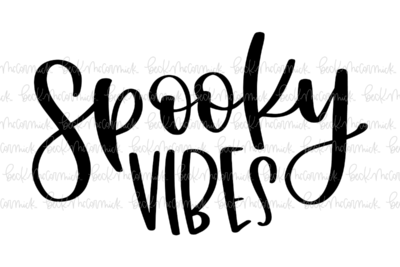 Spooky
VIBES